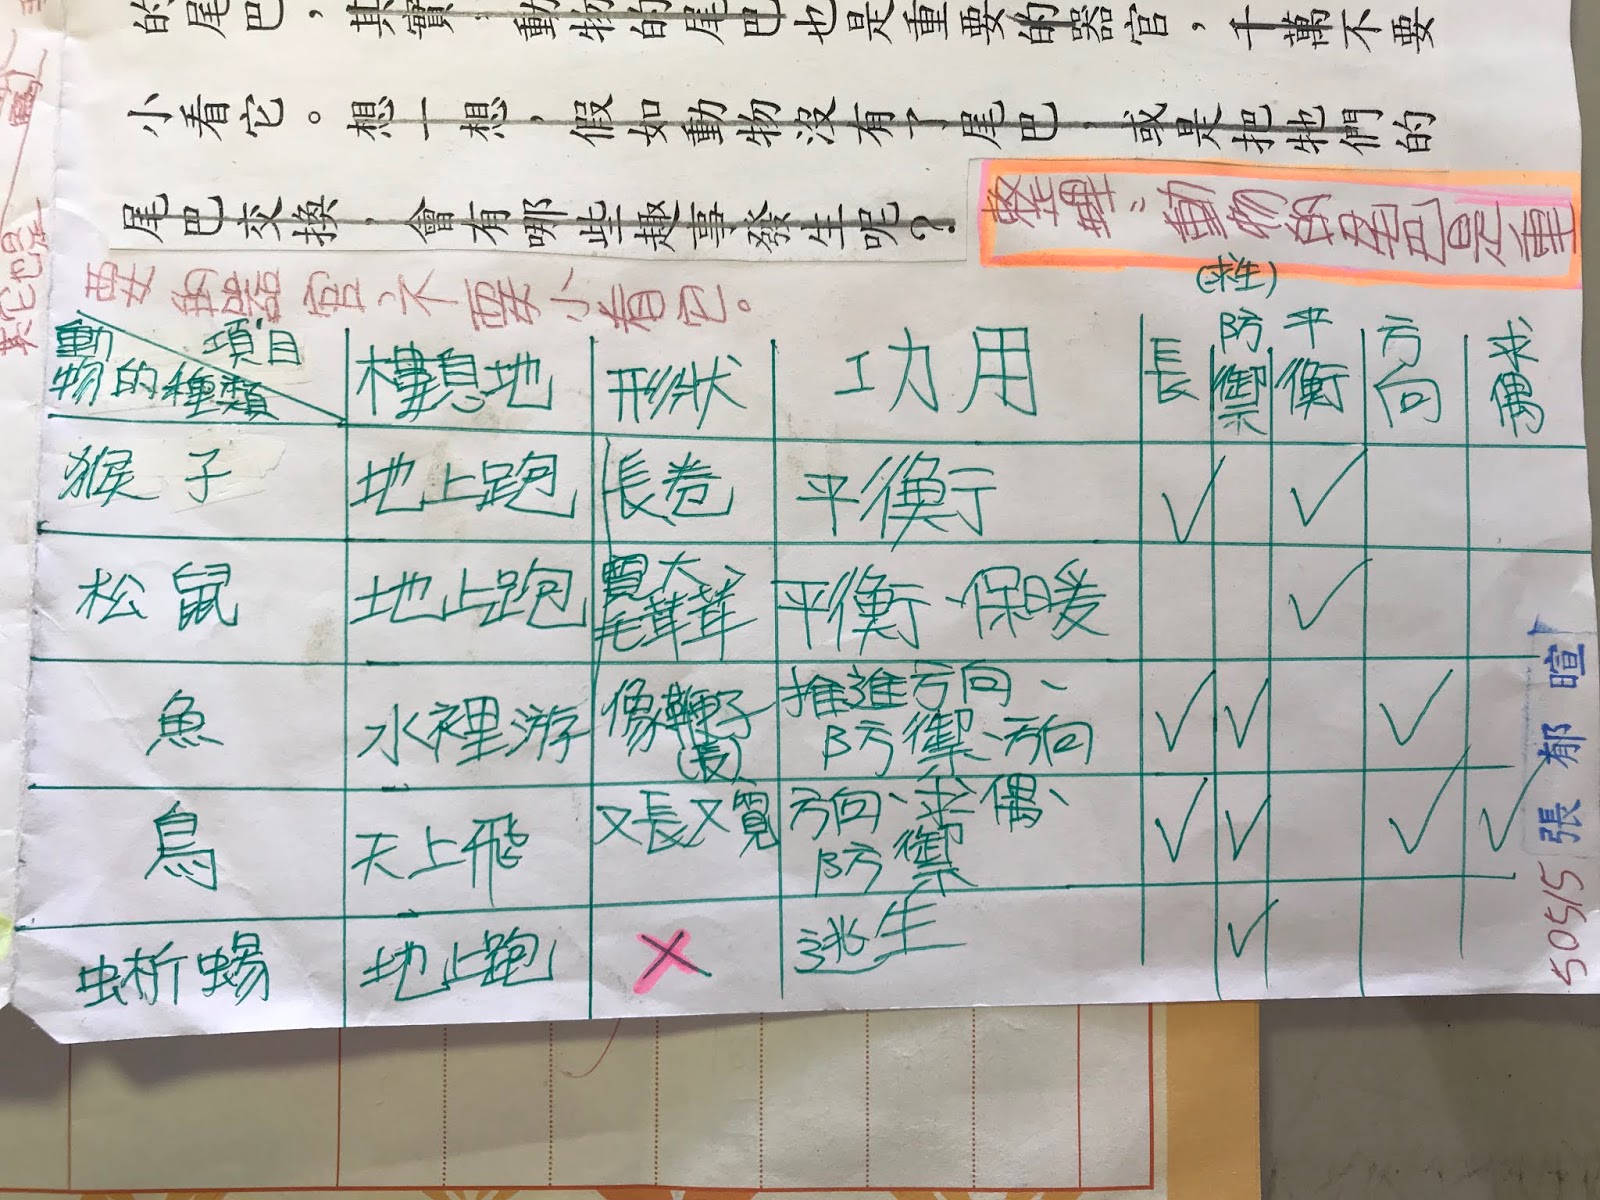 的尾巴，其實，動物的尾巴也是重要的器官，千萬不要
小看它。想一想，假如動物沒有了尾巴，或是把牠們的
尾巴交換，會有哪些趣事發生呢？
整理：動物的尾巴是重
要的器官，不要小看它。
動物的種類 項目 棲息地 形狀 功用 長 防禦(求生) 平衡 方向 求偶
猴子 地上跑 長卷 平衡 ✓ ✓
松鼠 地上跑 寬大、毛茸茸 平衡、保暖 ✓
魚 水裡游 像鞭子(長) 推進方向、防禦、方向 ✓ ✓ ✓
鳥 天上飛 又長又寬 方向、求偶、防禦 ✓ ✓ ✓ ✓
蜥蜴 地上跑 ✗ 逃生 ✓
50515 張郁暄